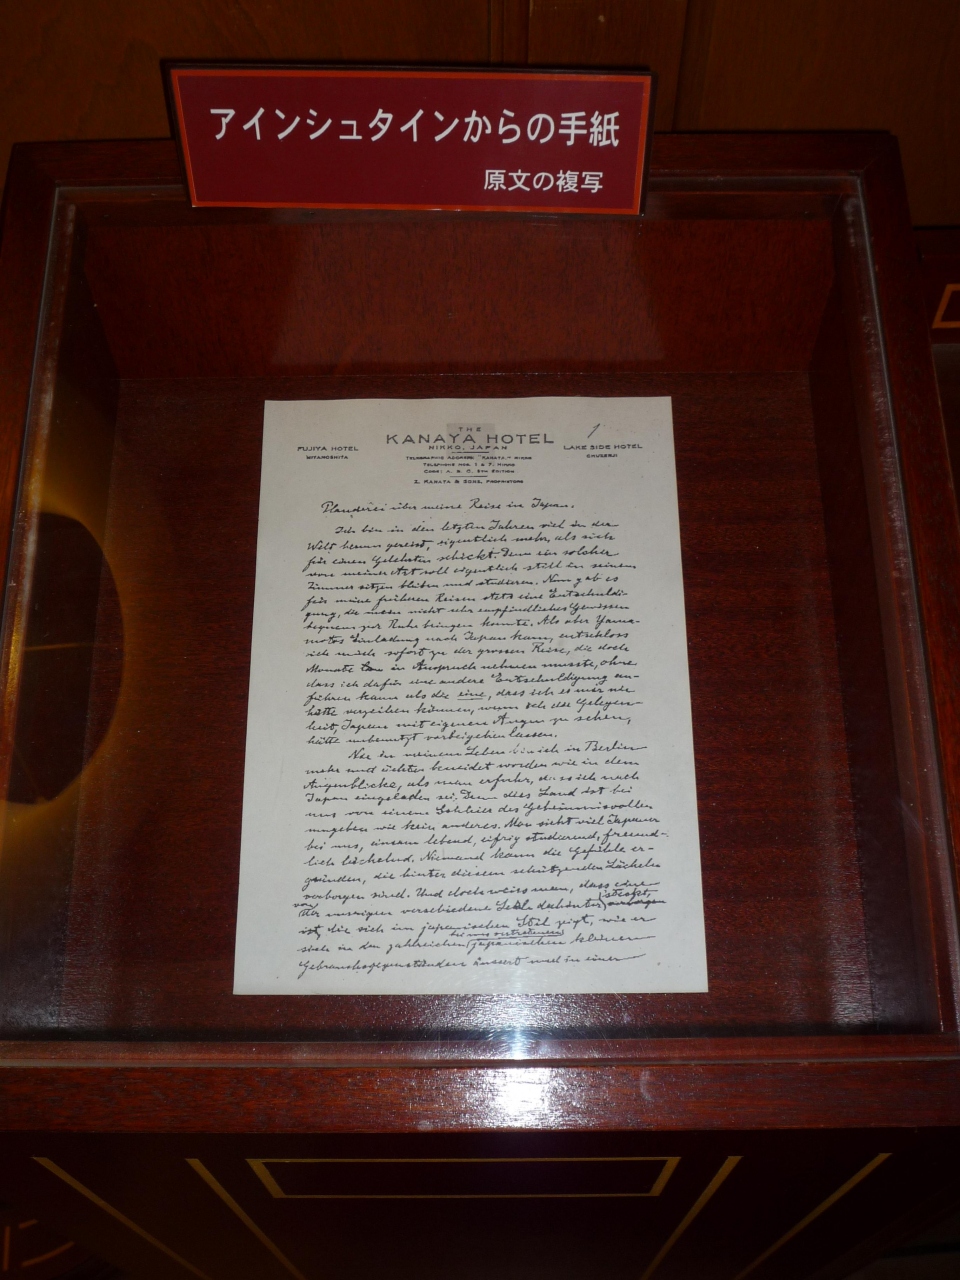 アインシュタインからの手紙
原文の複写
THE
KANAYA HOTEL
NIKKO, JAPAN
FUJIYA HOTEL
MIYANOSHITA
LAKE SIDE HOTEL
CHUZENJI
TELEGRAPHIC ADDRESS "KANAYA," NIKKO
TELEPHONE NOS. 1 & 7, NIKKO
CODE: A. B. C. 5TH EDITION
Z. KANAYA & SONS, PROPRIETORS
1
Plauderei über meine Reise in Japan.
Ich bin in den letzten Jahren viel in der
Welt herum gereist, eigentlich mehr, als sich
für einen Gelehrten schickt. Denn ein solcher
von meiner Art soll eigentlich still in seinem
Zimmer sitzen bleiben und studieren. Nun gab es
für meine früheren Reisen stets eine Entschuldi-
gung, die mein nicht sehr empfindliches Gewissen
bequem zur Ruhe bringen konnte. Als aber Yama-
motos Einladung nach Japan kam, entschloss
ich mich sofort zu der grossen Reise, die doch
Monate in Anspruch nehmen musste, ohne
dass ich dafür eine andere Entschuldigung an-
führen kann als die eine, dass ich es mir nie
hätte verzeihen können, wenn ich die Gelegen-
heit, Japan mit eigenen Augen zu sehen,
hätte unbenutzt vorbeigehen lassen.
Nie in meinem Leben bin ich in Berlin
mehr und echter beneidet worden wie in dem
Augenblicke, als man erfuhr, dass ich nach
Japan eingeladen sei. Denn dies Land ist bei
uns von einem Schleier des Geheimnisvollen
umgeben wie kein anderes. Man sieht viel Japaner
bei uns, einsam lebend, eifrig studierend, freund-
lich lächelnd. Niemand kann die Gefühle er-
gründen, die hinter diesem schützenden Lächeln
verborgen sind. Und doch weiss man, dass eine
von der unsrigen verschiedene Seele dahinter steckt,
die sich im japanischen Stil zeigt, wie er
sich in den zahlreichen bei uns vertretenen japanischen kleinen
Gebrauchsgegenständen äussert und in einer